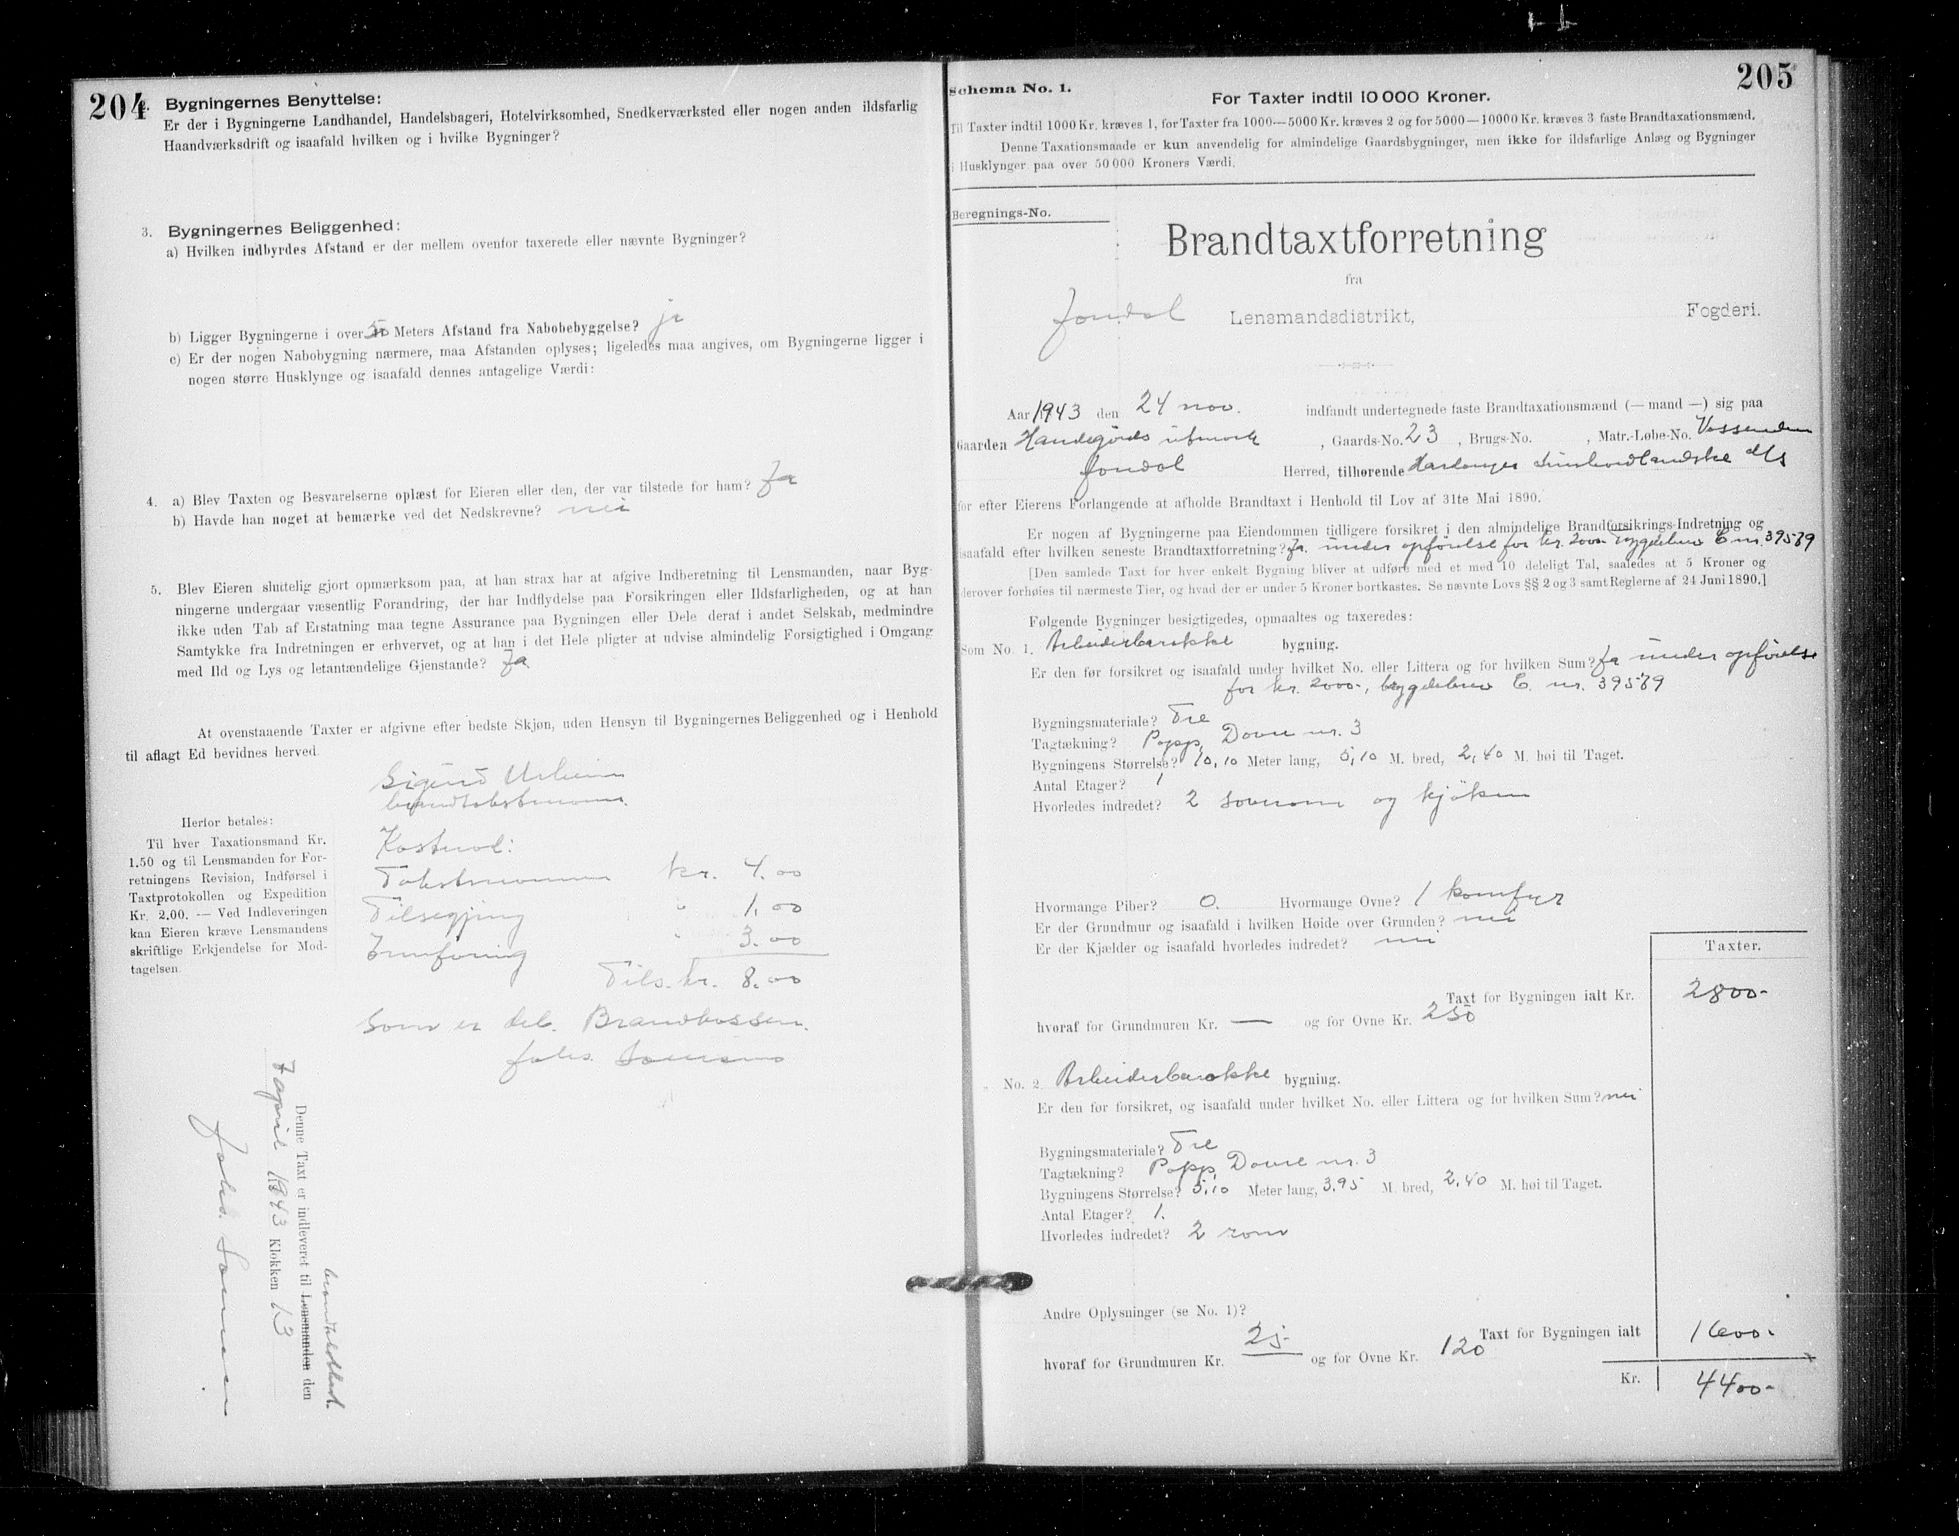 204
2. Bygningernes Benyttelse:
Er der i Bygningerne Landhandel, Handelsbageri, Hotelvirksomhed, Snedkerværksted eller nogen anden ildsfarlig
Haandværksdrift og isaafald hvilken og i hvilke Bygninger?
3. Bygningernes Beliggenhed:
a) Hvilken indbyrdes Afstand er der mellem ovenfor taxerede eller nævnte Bygninger?
b) Ligger Bygningerne i over 50 Meters Afstand fra Nabobebyggelse? ja
c) Er der nogen Nabobygning nærmere, maa Afstanden oplyses; ligeledes maa angives, om Bygningerne ligger i
nogen større Husklynge og isaafald dennes antagelige Værdi:
4. a) Blev Taxten og Besvarelserne oplæst for Eieren eller den, der var tilstede for ham? Ja
b) Havde han noget at bemærke ved det Nedskrevne? nei
5. Blev Eieren sluttelig gjort opmærksom paa, at han strax har at afgive Indberetning til Lensmanden, naar Byg-
ningerne undergaar væsentlig Forandring, der har Indflydelse paa Forsikringen eller Ildsfarligheden, og at han
ikke uden Tab af Erstatning maa tegne Assurance paa Bygningen eller Dele deraf i andet Selskab, medmindre
Samtykke fra Indretningen er erhvervet, og at han i det Hele pligter at udvise almindelig Forsigtighed i Omgang
med Ild og Lys og letantændelige Gjenstande? Ja
At ovenstaaende Taxter er afgivne efter bedste Skjøn, uden Hensyn til Bygningernes Beliggenhed og i Henhold
til aflagt Ed bevidnes herved.
Sigurd
brandtakstmann.
Herfor betales:
Til hver Taxationsmand Kr.
1.50 og til Lensmanden for For-
retningens Revision, Indførsel i
Taxtprotokollen og Expedition
Kr. 2.00. — Ved Indleveringen
kan Eieren kræve Lensmandens
skriftlige Erkjendelse for Mod-
tagelsen.
Kostnad:
Takstmannen kr. 4.00
Tilsegjing " 1.00
Innföring " 3.00
Tils. kr. 8.00
Som er del. Brandkassen.
Johs.
Denne Taxt er indleveret til Lensmanden den
7 april 1943 Klokken 13
Johs.
205
Schema No. 1.
For Taxter indtil 10 000 Kroner.
Til Taxter indtil 1000 Kr. kræves 1, for Taxter fra 1000—5000 Kr. kræves 2 og for 5000—10000 Kr. kræves 3 faste Brandtaxationsmænd.
Denne Taxationsmaade er kun anvendelig for almindelige Gaardsbygninger, men ikke for ildsfarlige Anlæg og Bygninger
i Husklynger paa over 50 000 Kroners Værdi.
Beregnings-No.
Brandtaxtforretning
fra
Jondal Lensmandsdistrikt, Fogderi.
Aar 1943 den 24 nov. indfandt undertegnede faste Brandtaxationsmænd (— mand —) sig paa
Gaarden Handegårds utmark , Gaards-No. 23 , Brugs-No. , Matr.-Løbe-No. Vassenden
Jondal Herred, tilhørende Hardanger Sunnhordlandske d/s
for efter Eierens Forlangende at afholde Brandtaxt i Henhold til Lov af 31te Mai 1890.
Er nogen af Bygningerne paa Eiendommen tidligere forsikret i den almindelige Brandforsikrings-Indretning og
isaafald efter hvilken seneste Brandtaxtforretning? Ja. under opförelse for kr. 2000- byggebrev E nr. 39589
[Den samlede Taxt for hver enkelt Bygning bliver at udføre med et med 10 deleligt Tal, saaledes at 5 Kroner og
derover forhøies til nærmeste Tier, og hvad der er under 5 Kroner bortkastes. Se nævnte Lovs §§ 2 og 3 samt Reglerne af 24 Juni 1890.]
Følgende Bygninger besigtigedes, opmaaltes og taxeredes:
Som No. 1. Arbeiderbarakke bygning.
Er den før forsikret og isaafald under hvilket No. eller Littera og for hvilken Sum? Ja under opförelse
for kr. 2000-, byggebrev E. nr. 39589
Bygningsmateriale? Tre
Tagtækning? Papp, Dovre nr. 3
Bygningens Størrelse? 10,10 Meter lang, 5,10 M. bred, 2,40 M. høi til Taget.
Antal Etager? 1
Hvorledes indredet? 2 soverom og kjøken
Hvormange Piber? 0. Hvormange Ovne? 1 komfyr
Er der Grundmur og isaafald i hvilken Høide over Grunden? nei
Er der Kjælder og isaafald hvorledes indredet? nei
Taxter.
Taxt for Bygningen ialt Kr. 2800-
hvoraf for Grundmuren Kr. — og for Ovne Kr. 250
No. 2 Arbeiderbarakke bygning.
Er den før forsikret, og isaafald under hvilket No. eller Littera og for hvilken Sum? nei
Bygningsmateriale? Tre
Tagtækning? Papp, Dovre nr. 3
Bygningens Størrelse? 5,10 Meter lang, 3,95 M. bred, 2,40 M. høi til Taget.
Antal Etager? 1.
Hvorledes indredet? 2 rom
Andre Oplysninger (se No. 1)?
Taxt for Bygningen ialt 1600-
hvoraf for Grundmuren Kr. 25- og for Ovne Kr. 120
Kr. 4400-